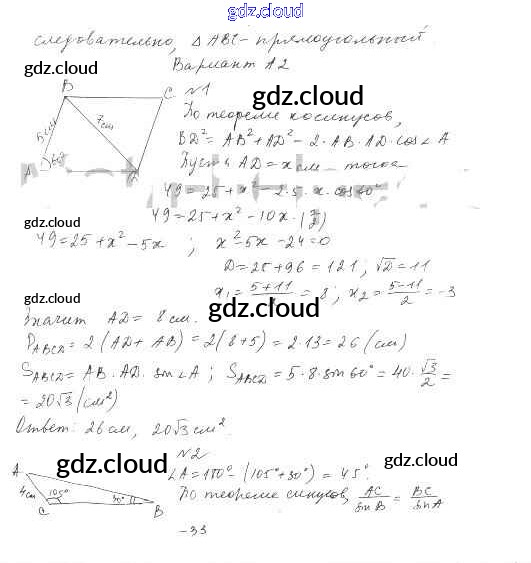 gdz.cloud
следовательно, △ ABC - прямоугольный
gdz.cloud
Вариант А2
B C
№1
gdz.cloud
По теореме косинусов,
5см 7см
BD² = AB² + AD² - 2·AB·AD·cos∠A
A 60°
Пусть AD = x см - тогда
49 = 25 + x² - 2·5·x·cos 60°
gdz.cloud
49 = 25 + x² - 10x·(1/2)
49 = 25 + x² - 5x ; x² - 5x - 24 = 0
D = 25 + 96 = 121 ; √D = 11
gdz.cloud
x₁ = (5+11)/2 = 8 ; x₂ = (5-11)/2 = -3
gdz.cloud
Значит AD = 8 см.
P ABCD = 2(AD + AB) = 2(8+5) = 2·13 = 26 (см)
S ABCD = AB·AD·sin∠A ; S ABCD = 5·8·sin 60° = 40·√3/2 =
= 20√3 (см²)
gdz.cloud
Ответ: 26 см, 20√3 см².
№2
gdz.cloud gdz.cloud
A
∠A = 180° - (105° + 30°) = 45°.
4см 105° 30°
C B
По теореме синусов, AC/sin B = BC/sin A
gdz.cloud
-33